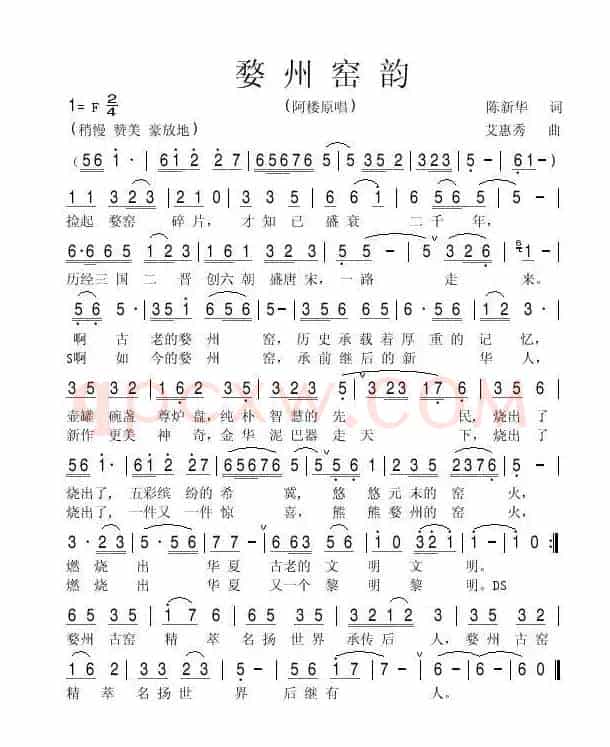 婺州窑韵
1= F 2/4
(阿楼原唱)
陈新华 词
(稍慢 赞美 豪放地)
艾惠秀 曲
(56 1· | 612 27 | 65676 5 | 5352 | 323 5 - | 61 - )
11 323 | 210 3 | 35 1 | 66 1 | 6 565 | 5 - |
捡起 婺窑 碎片, 才知已 盛衰 二千 年,
6·665 3 | 123 2 | 161 332 | 5 5 - | 5 326 | 1 - |
历经三 国二 晋 创六 朝 盛唐宋, 一路 走 来。
56· | 351 1 | 656 5· | 3561 3· | 356· | 12 3· |
啊 古 老的婺 州 窑, 历史承载着厚 重的 记忆,
S啊 如 今的婺 州 窑, 承前继后的新 华 人,
35 32 | 162 2 | 235 53 | 5 323 | 176 | 653 |
壶罐 碗盏 尊炉 盘,纯朴 智慧的 先 民, 烧出了
新作 更美 神 奇, 金华 泥巴器 走 天 下, 烧出了
56 1· | 612 27 | 65676 5· | 5 56 1· | 323 2376 | 5 - |
烧出了, 五彩缤 纷的 希 冀, 悠 悠元末的 窑 火,
烧出了, 一件又 一件 惊 喜, 熊 熊婺州的 窑 火,
3· 23 | 5· 56 | 77 - | 663 56 | 10 321 | 1 - | 10 :‖
燃 烧 出 华夏 古老的 文 明 文 明。
燃 烧 出 华夏 又一个 黎 明 黎 明。DS
65 35 | 17 6 | 323 35 | 3212 1 | 65 35 |
婺州 古窑 精 萃 名扬 世 界 承传后 人, 婺州 古窑
16 2 | 323 235 | 5 17 | 5 - | 5 - | 50 ‖
精 萃 名 扬世 界 后继有 人。